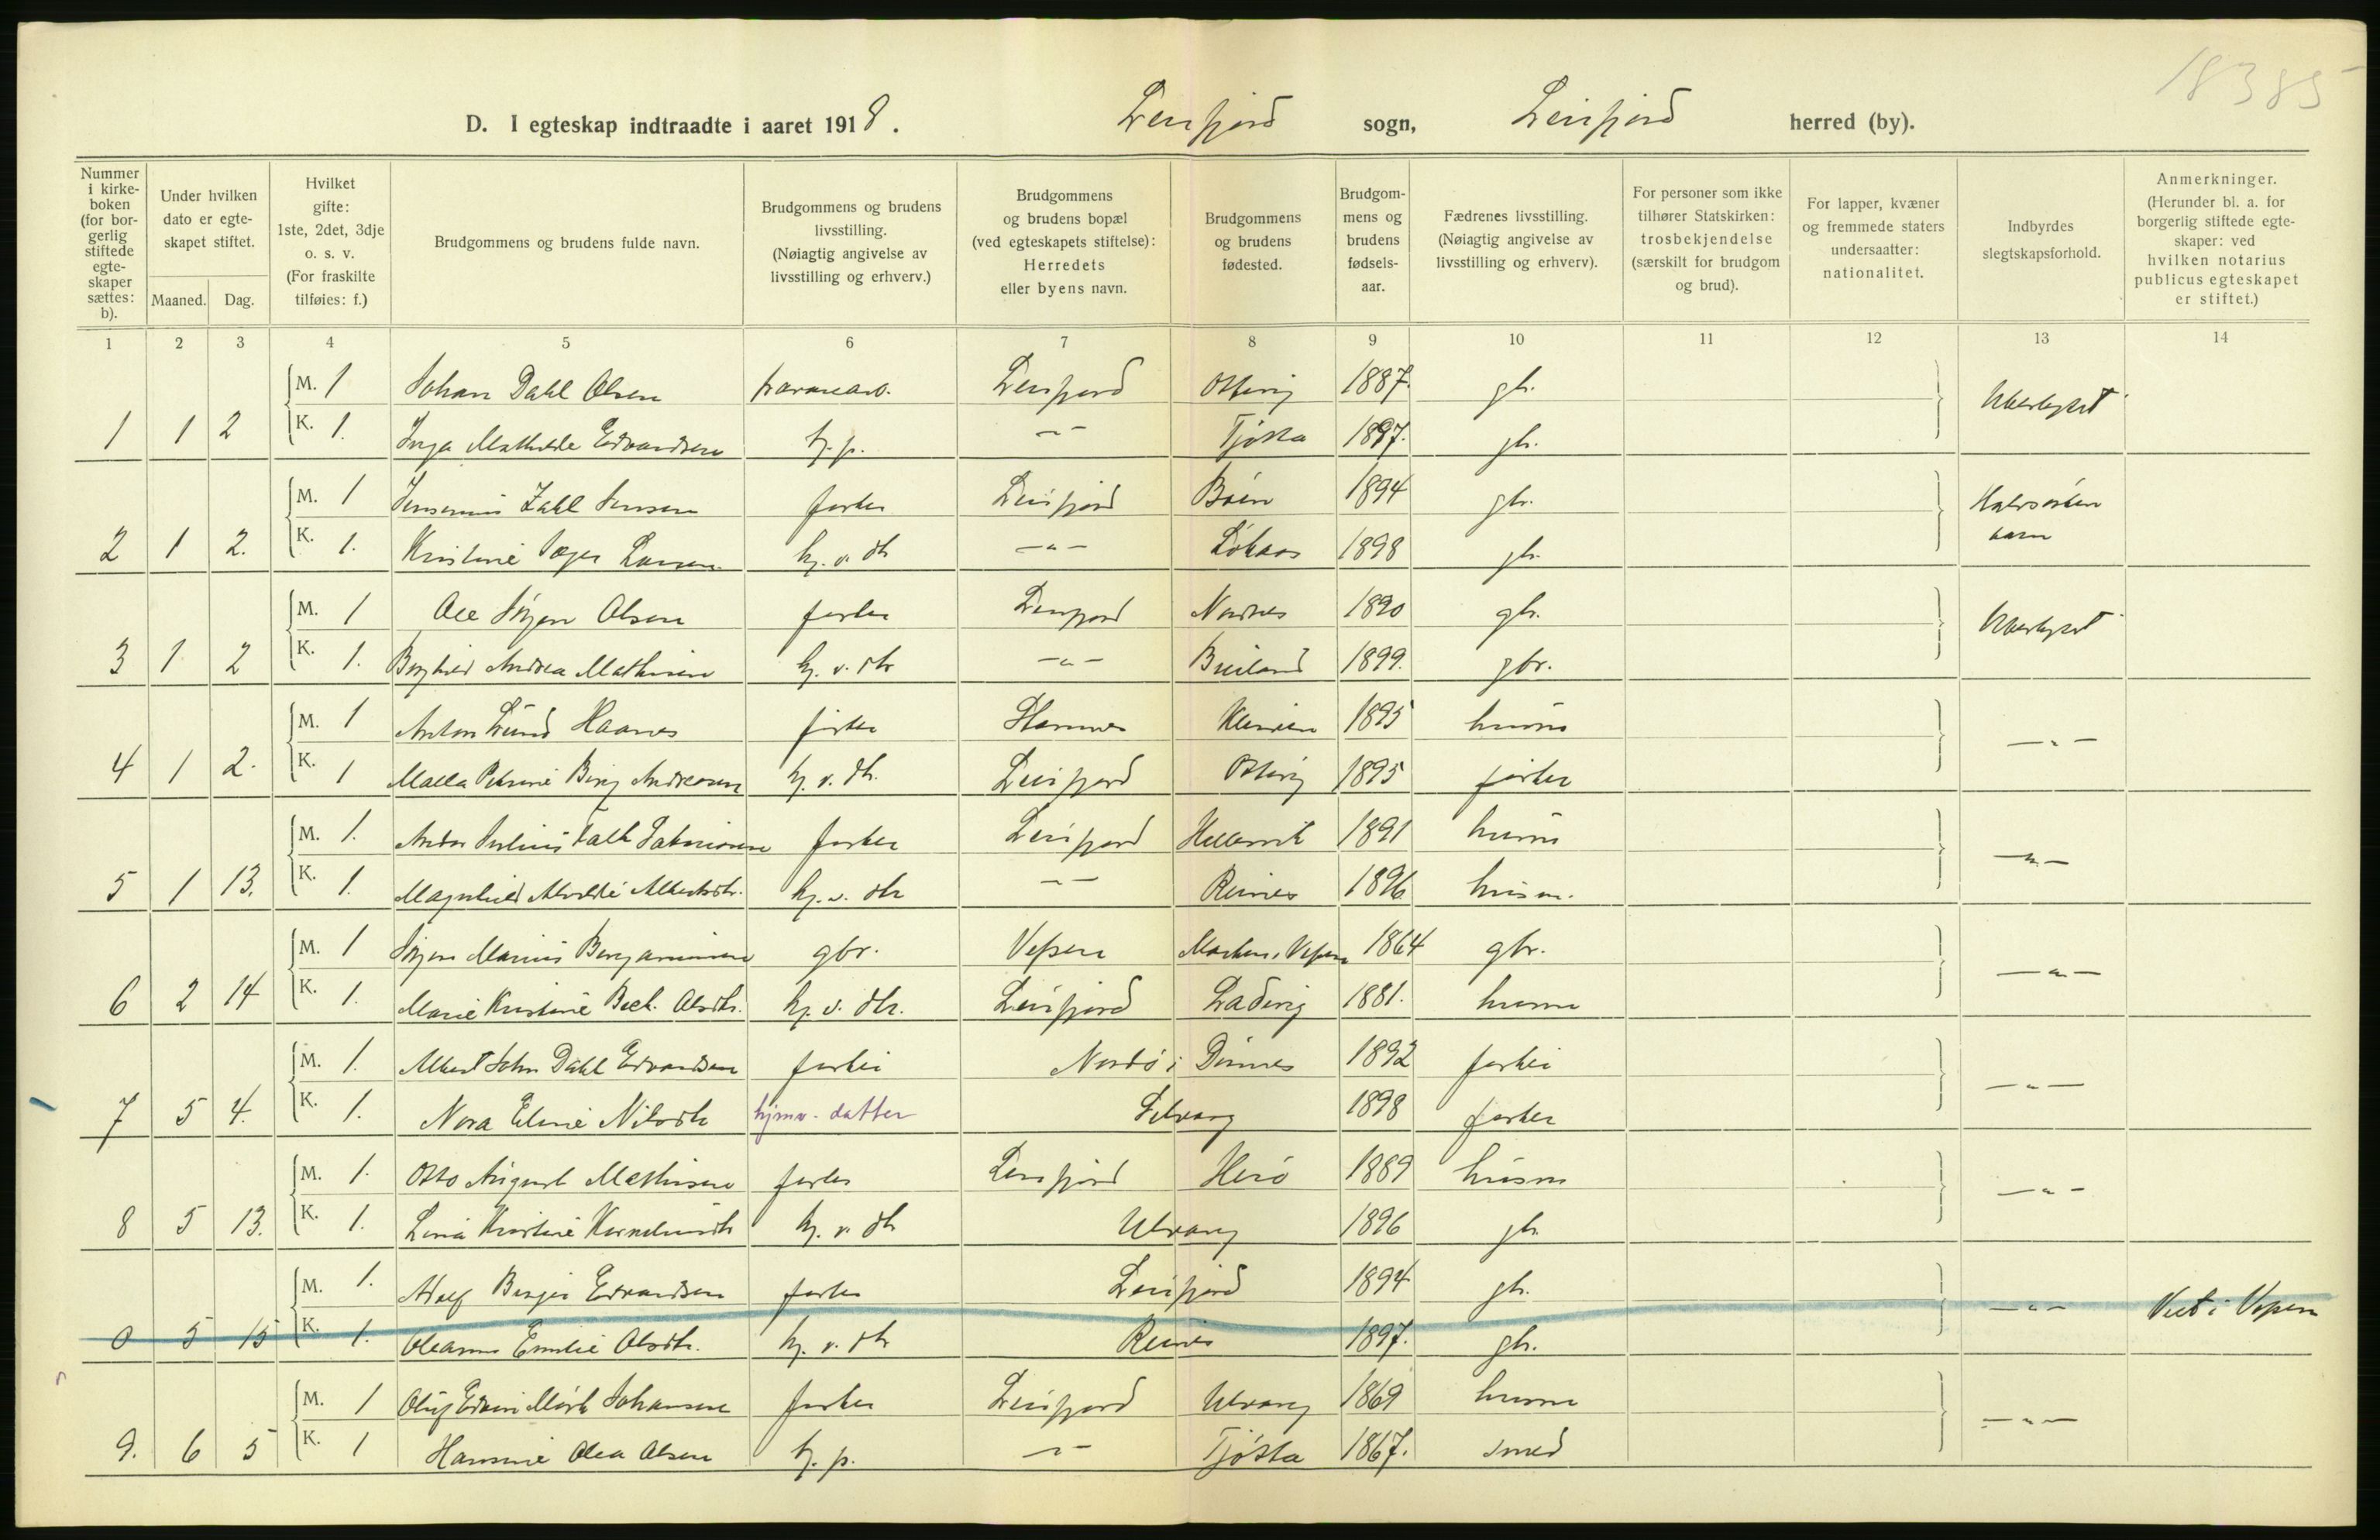 18385
D. I egteskap indtraadte i aaret 1918. Leirfjord sogn, Leirfjord herred (by).
Nummer i kirke-boken (for bor-gerlig stiftede egte-skaper sættes: b).
Under hvilken dato er egte-skapet stiftet.
Maaned. Dag.
Hvilket gifte: 1ste, 2det, 3dje o. s. v. (For fraskilte tilføies: f.)
Brudgommens og brudens fulde navn.
Brudgommens og brudens livsstilling. (Nøiagtig angivelse av livsstilling og erhverv.)
Brudgommens og brudens bopæl (ved egteskapets stiftelse): Herredets eller byens navn.
Brudgommens og brudens fødested.
Brudgom-mens og brudens fødsels-aar.
Fædrenes livsstilling. (Nøiagtig angivelse av livsstilling og erhverv).
For personer som ikke tilhører Statskirken: trosbekjendelse (særskilt for brudgom og brud).
For lapper, kvæner og fremmede staters undersaatter: nationalitet.
Indbyrdes slegtskapsforhold.
Anmerkninger. (Herunder bl. a. for borgerlig stiftede egte-skaper: ved hvilken notarius publicus egteskapet er stiftet.)
1 2 3 4 5 6 7 8 9 10 11 12 13 14
M. 1 Johan Dahl Olsen Leirfjord 1887. gbr. Ubeslegtet
1 1 2 K. 1. Inga Mathilde Edvardsen hj. p. -"- Tjøtta 1897. gbr.
M. 1 Jensenius Zahl Jensen fisker Leirfjord 1894 gbr. Halvsøsken
2 1 2. K. 1. Kristine Larsen hj. v. dtr -"- 1898 gbr. barn
M. 1 Ole Jørgen Olsen fisker Leirfjord 1890 gbr. Ubeslegtet
3 1 2 K. 1. Borghild Andrea Mathisen hj. v. dtr -"- Breiland 1899. gbr.
M. 1 Anton Lund Haanes fisker Stamnes 1895 husm -"-
4 1 2. K. 1 Petrine Berg Andreasen hj. v. dtr. Leirfjord 1895 fisker
M. 1. Anton Julius Falk fisker Leirfjord Hellesvik 1891 husm -"-
5 1 13. K. 1. Magnhild Albertsdtr. hj. v. dtr -"- Reines 1896 husm.
M. 1 Jørgen Marius Benjaminsen gbr. Vefsen Vefsen 1864 gbr. -"-
6 2 14 K. 1. Marie Kristine Bech Olsdtr. hj. v. dtr. Leirfjord 1881. husm
M. 1. Albert John Dahl Edvardsen fisker Nordvik Dønnes 1892 fisker -"-
7 5 4. K. 1. Nora Eline Nilsdtr hjmv. datter 1898 fisker
M. 1. Otto August Mathisen fisker Leirfjord Herø 1889 husm -"-
8 5 13. K. 1. Kristine Korneliusdtr hj. v. dtr Ulvang 1896 gbr.
M. 1. Adolf Birger Edvardsen fisker Leirfjord 1894 gbr. -"- Viet i Vefsen
0 5 15 K. 1. Oleanna Emilie Olsdtr. hj. v. dtr Reines 1897. gbr.
M. 1 Oluf Edvin Mørk Johansen fisker Leirfjord Ulvang 1869 husm -"-
9. 6 5 K. 1 Hansine Olea Olsen hj. p. -"- Tjøtta 1867. smed